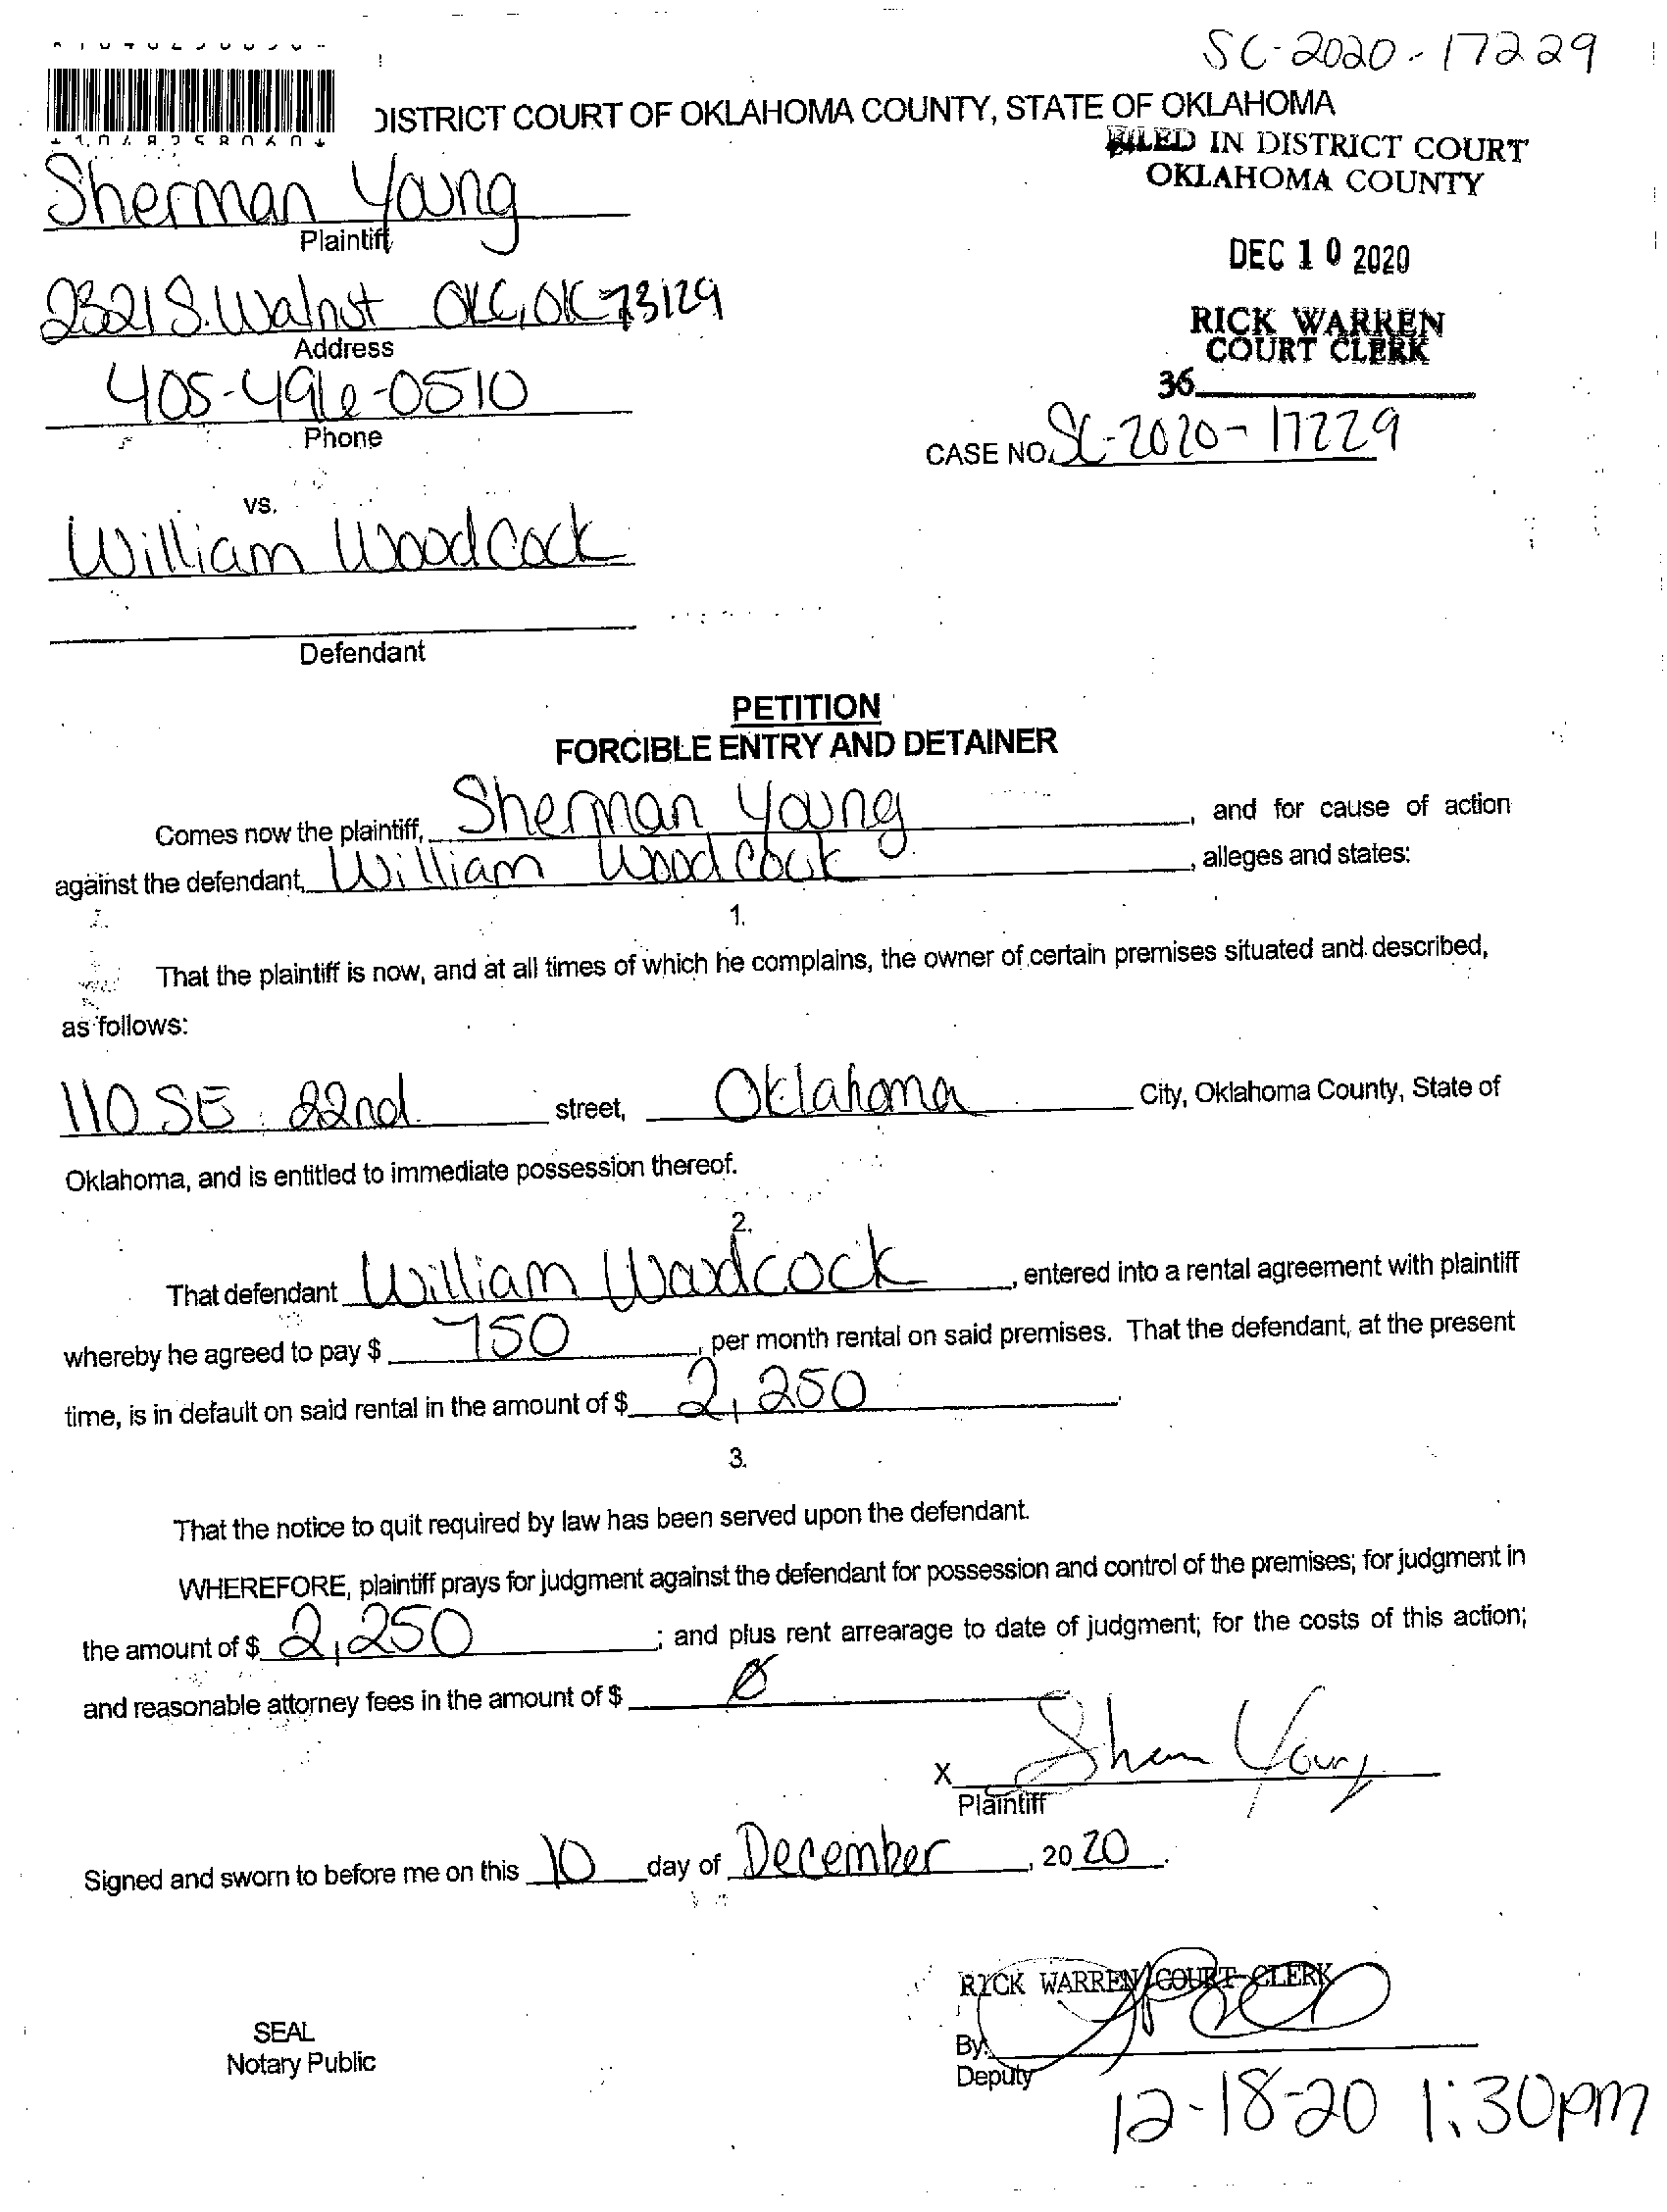 SC-2020-17229
DISTRICT COURT OF OKLAHOMA COUNTY, STATE OF OKLAHOMA
FILED IN DISTRICT COURT
OKLAHOMA COUNTY
Sherman Young
Plaintiff
DEC 10 2020
2321 S. Walnut OKC, OK 73129
Address
RICK WARREN
COURT CLERK
405-496-0510
36
Phone
CASE NO. SC-2020-17229
vs.
William Woodcock
Defendant
PETITION
FORCIBLE ENTRY AND DETAINER
Comes now the plaintiff, Sherman Young, and for cause of action
against the defendant, William Woodcock, alleges and states:
1.
That the plaintiff is now, and at all times of which he complains, the owner of certain premises situated and described,
as follows:
110 SE 22nd street, Oklahoma City, Oklahoma County, State of
Oklahoma, and is entitled to immediate possession thereof.
2.
That defendant William Woodcock, entered into a rental agreement with plaintiff
whereby he agreed to pay $ 750, per month rental on said premises. That the defendant, at the present
time, is in default on said rental in the amount of $ 2,250.
3.
That the notice to quit required by law has been served upon the defendant.
WHEREFORE, plaintiff prays for judgment against the defendant for possession and control of the premises; for judgment in
the amount of $ 2,250; and plus rent arrearage to date of judgment; for the costs of this action;
and reasonable attorney fees in the amount of $ 0
X Sherman Young
Plaintiff
Signed and sworn to before me on this 10 day of December, 2020.
RICK WARREN, COURT CLERK
SEAL
Notary Public
By:
Deputy
12-18-20 1:30pm